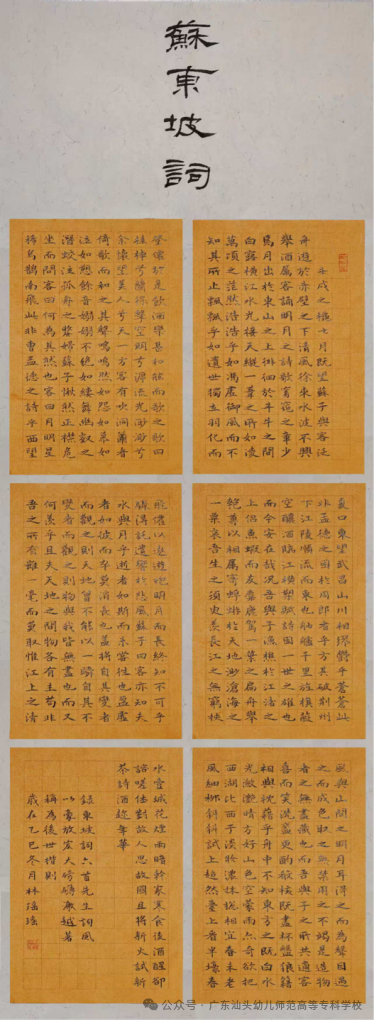 蘇東坡詞
壬戌之秋七月既望蘇子與客泛
舟遊於赤壁之下清風徐來水波不興
舉酒屬客誦明月之詩歌窈窕之章少
焉月出於東山之上徘徊於斗牛之間
白露橫江水光接天縱一葦之所如凌
萬頃之茫然浩浩乎如馮虛御風而不
知其所止飄飄乎如遺世獨立羽化而
登僊於是飲酒樂甚扣舷而歌之歌曰
桂棹兮蘭槳擊空明兮溯流光渺渺兮
余懷望美人兮天一方客有吹洞簫者
倚歌而和之其聲嗚嗚然如怨如慕如
泣如愬餘音嫋嫋不絕如縷舞幽壑之
潛蛟泣孤舟之嫠婦蘇子愀然正襟危
坐而問客曰何為其然也客曰月明星
稀烏鵲南飛此非曹孟德之詩乎西望
夏口東望武昌山川相繆鬱乎蒼蒼此
非孟德之困於周郎者乎方其破荊州
下江陵順流而東也舳艫千里旌旗蔽
空釃酒臨江橫槊賦詩固一世之雄也
而今安在哉況吾與子漁樵於江渚之
上侶魚蝦而友麋鹿駕一葉之扁舟舉
匏尊以相屬寄蜉蝣於天地渺滄海之
一粟哀吾生之須臾羨長江之無窮挾
飛僊以遨遊抱明月而長終知不可乎
驟得託遺響於悲風蘇子曰客亦知夫
水與月乎逝者如斯而未嘗往也盈虛
者如彼而卒莫消長也蓋將自其變者
而觀之則天地曾不能以一瞬自其不
變者而觀之則物與我皆無盡也而又
何羨乎且夫天地之間物各有主苟非
吾之所有雖一毫而莫取惟江上之清
風與山間之明月耳得之而為聲目遇
之而成色取之無禁用之不竭是造物
者之無盡藏也而吾與子之所共適客
喜而笑洗盞更酌肴核既盡杯盤狼籍
相與枕藉乎舟中不知東方之既白水
光瀲灩晴方好山色空蒙雨亦奇欲把
西湖比西子淡妝濃抹總相宜春未老
風細柳斜斜試上超然臺上看半壕春
水一城花煙雨暗千家寒食後酒醒卻
諮嗟休對故人思故國且將新火試新
茶詩酒趁年華
錄東坡詞六首先生詞風
以豪放宏大磅礴激越著
稱為後世楷則
歲在乙巳冬月林瑤瑤
公众号 · 广东汕头幼儿师范高等专科学校